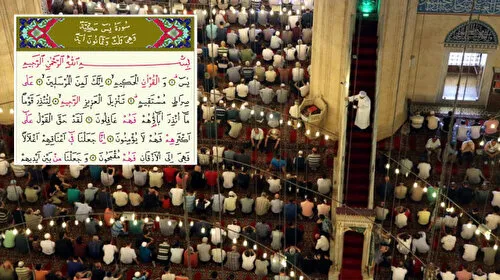 سُورَةُ يٰسٓ مَكِّيَّةٌ
وَهِيَ ثَلٰثٌ وَثَمَانُونَ اٰيَةً
بِسْمِ اللّٰهِ الرَّحْمٰنِ الرَّحِيمِ
يٰسٓ ۝ وَالْقُرْاٰنِ الْحَكِيمِ ۝ اِنَّكَ لَمِنَ الْمُرْسَلِينَ ۝ عَلٰى
صِرَاطٍ مُسْتَقِيمٍ ۝ تَنْزِيلَ الْعَزِيزِ الرَّحِيمِ ۝ لِتُنْذِرَ قَوْمًا
مَا اُنْذِرَ اٰبَاؤُهُمْ فَهُمْ غَافِلُونَ ۝ لَقَدْ حَقَّ الْقَوْلُ عَلٰى
اَكْثَرِهِمْ فَهُمْ لَا يُؤْمِنُونَ ۝ اِنَّا جَعَلْنَا فِي اَعْنَاقِهِمْ اَغْلَالًا
فَهِيَ اِلَى الْاَذْقَانِ فَهُمْ مُقْمَحُونَ ۝ وَجَعَلْنَا مِنْ بَيْنِ اَيْدِيهِمْ